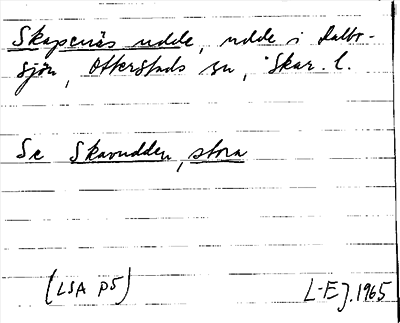 Skapenäs udde, udde i Dalbo-
sjön, Otterstads sn, Skar. l.
Se Skavudden, stora
(LSA P5)
L-EJ. 1965